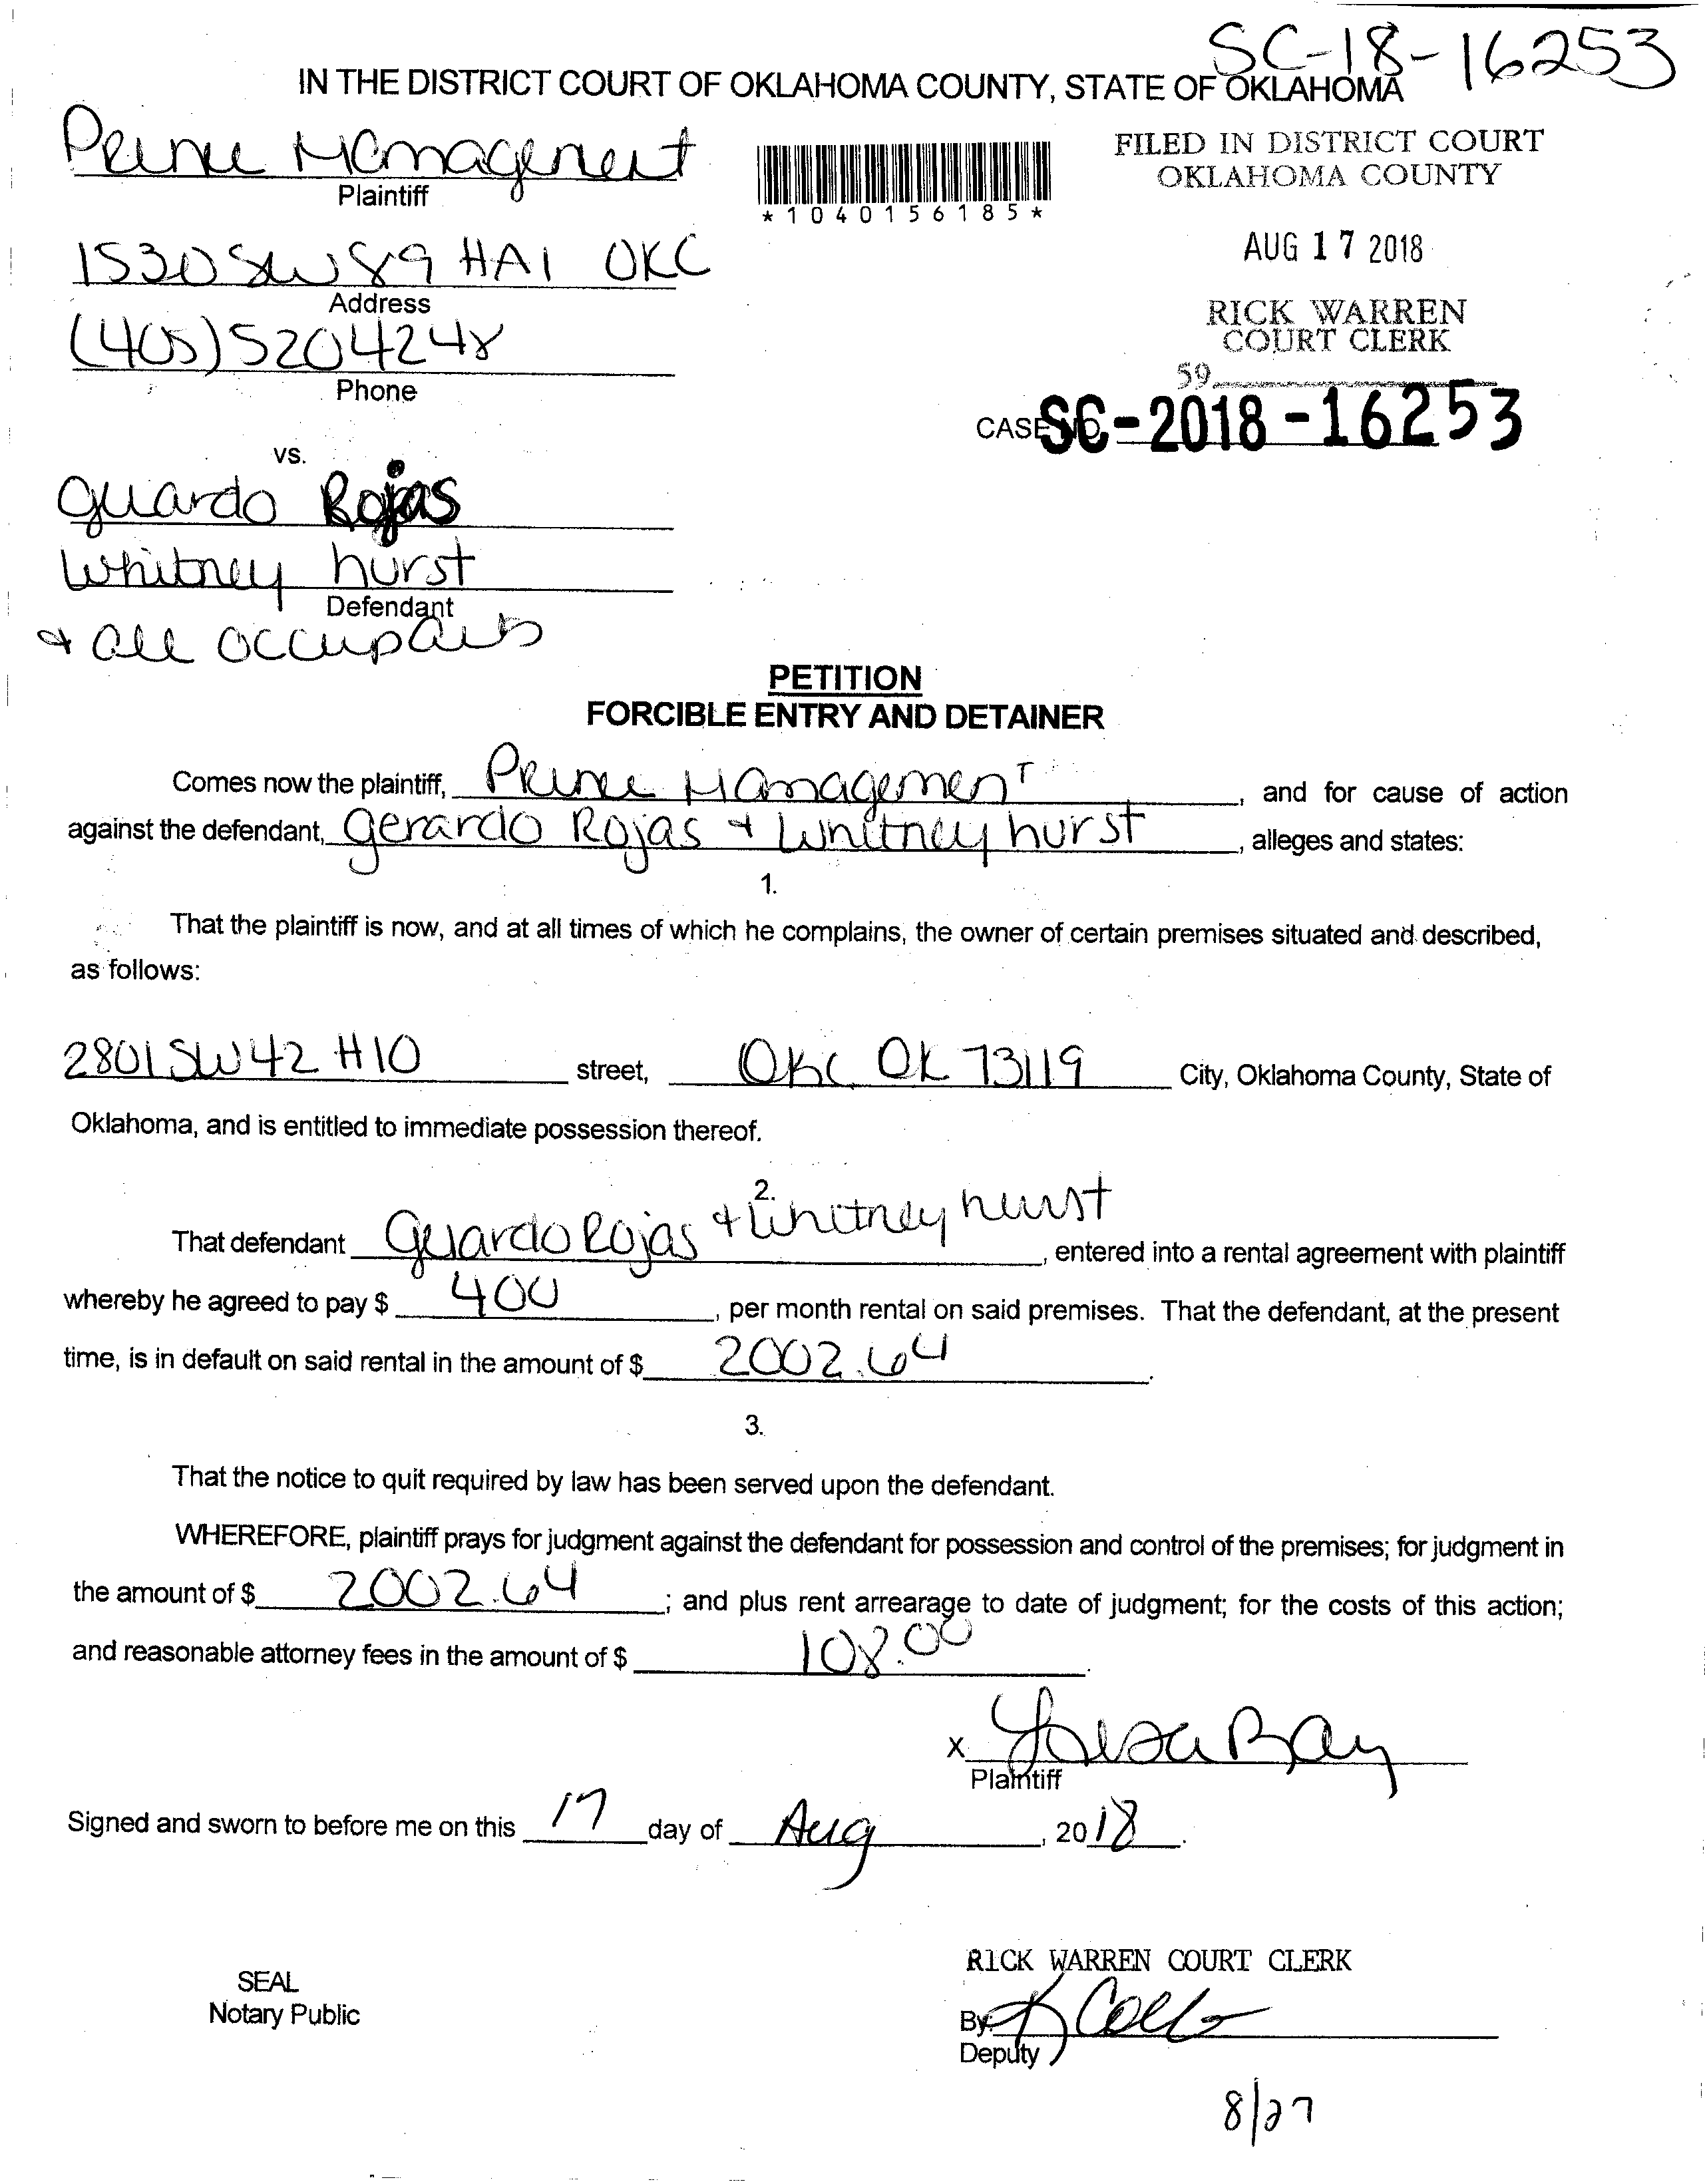 SC-18-16253
IN THE DISTRICT COURT OF OKLAHOMA COUNTY, STATE OF OKLAHOMA
Prince Management
Plaintiff
*1040156185*
FILED IN DISTRICT COURT
OKLAHOMA COUNTY
AUG 17 2018
RICK WARREN
COURT CLERK
59
1530 SW 89 #A1 OKC
Address
(405) 5204248
Phone
CASE NO. SC-2018-16253
vs.
Gerardo Rojas
Whitney hurst
Defendant
+ all occupants
PETITION
FORCIBLE ENTRY AND DETAINER
Comes now the plaintiff, Prince Management, and for cause of action
against the defendant, Gerardo Rojas + Whitney hurst, alleges and states:
1.
That the plaintiff is now, and at all times of which he complains, the owner of certain premises situated and described,
as follows:
2801 SW 42 #10 street, OKC OK 73119 City, Oklahoma County, State of
Oklahoma, and is entitled to immediate possession thereof.
2.
That defendant Gerardo Rojas + Whitney hurst, entered into a rental agreement with plaintiff
whereby he agreed to pay $ 400, per month rental on said premises. That the defendant, at the present
time, is in default on said rental in the amount of $ 2002.64.
3.
That the notice to quit required by law has been served upon the defendant.
WHEREFORE, plaintiff prays for judgment against the defendant for possession and control of the premises; for judgment in
the amount of $ 2002.64; and plus rent arrearage to date of judgment; for the costs of this action;
and reasonable attorney fees in the amount of $ 108.00.
X Bay
Plaintiff
Signed and sworn to before me on this 17 day of Aug, 2018.
SEAL
Notary Public
RICK WARREN COURT CLERK
By: K
Deputy
8/27